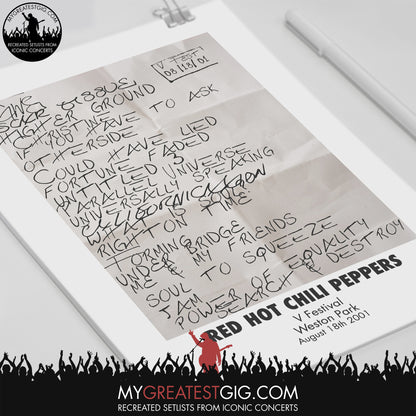 MYGREATESTGIG.COM
RECREATED SETLISTS FROM
ICONIC CONCERTS
V FEST
08/18/01
SUCK
HIGHER GROUND
CHRISTINE
IF YOU HAVE TO ASK
OTHERSIDE
COULD HAVE LIED
FORTUNE FADED
UNTITLED 3
PARALLEL UNIVERSE
UNIVERSALLY SPEAKING
CALIFORNICATION
WHAT IS SOUL
RIGHT ON TIME
UNDER BRIDGE
ME & MY FRIENDS
SOUL TO SQUEEZE
JAM
POWER OF EQUALITY
SEARCH & DESTROY
RED HOT CHILI PEPPERS
V Festival
Weston Park
August 18th 2001
MYGREATESTGIG.COM
RECREATED SETLISTS FROM ICONIC CONCERTS